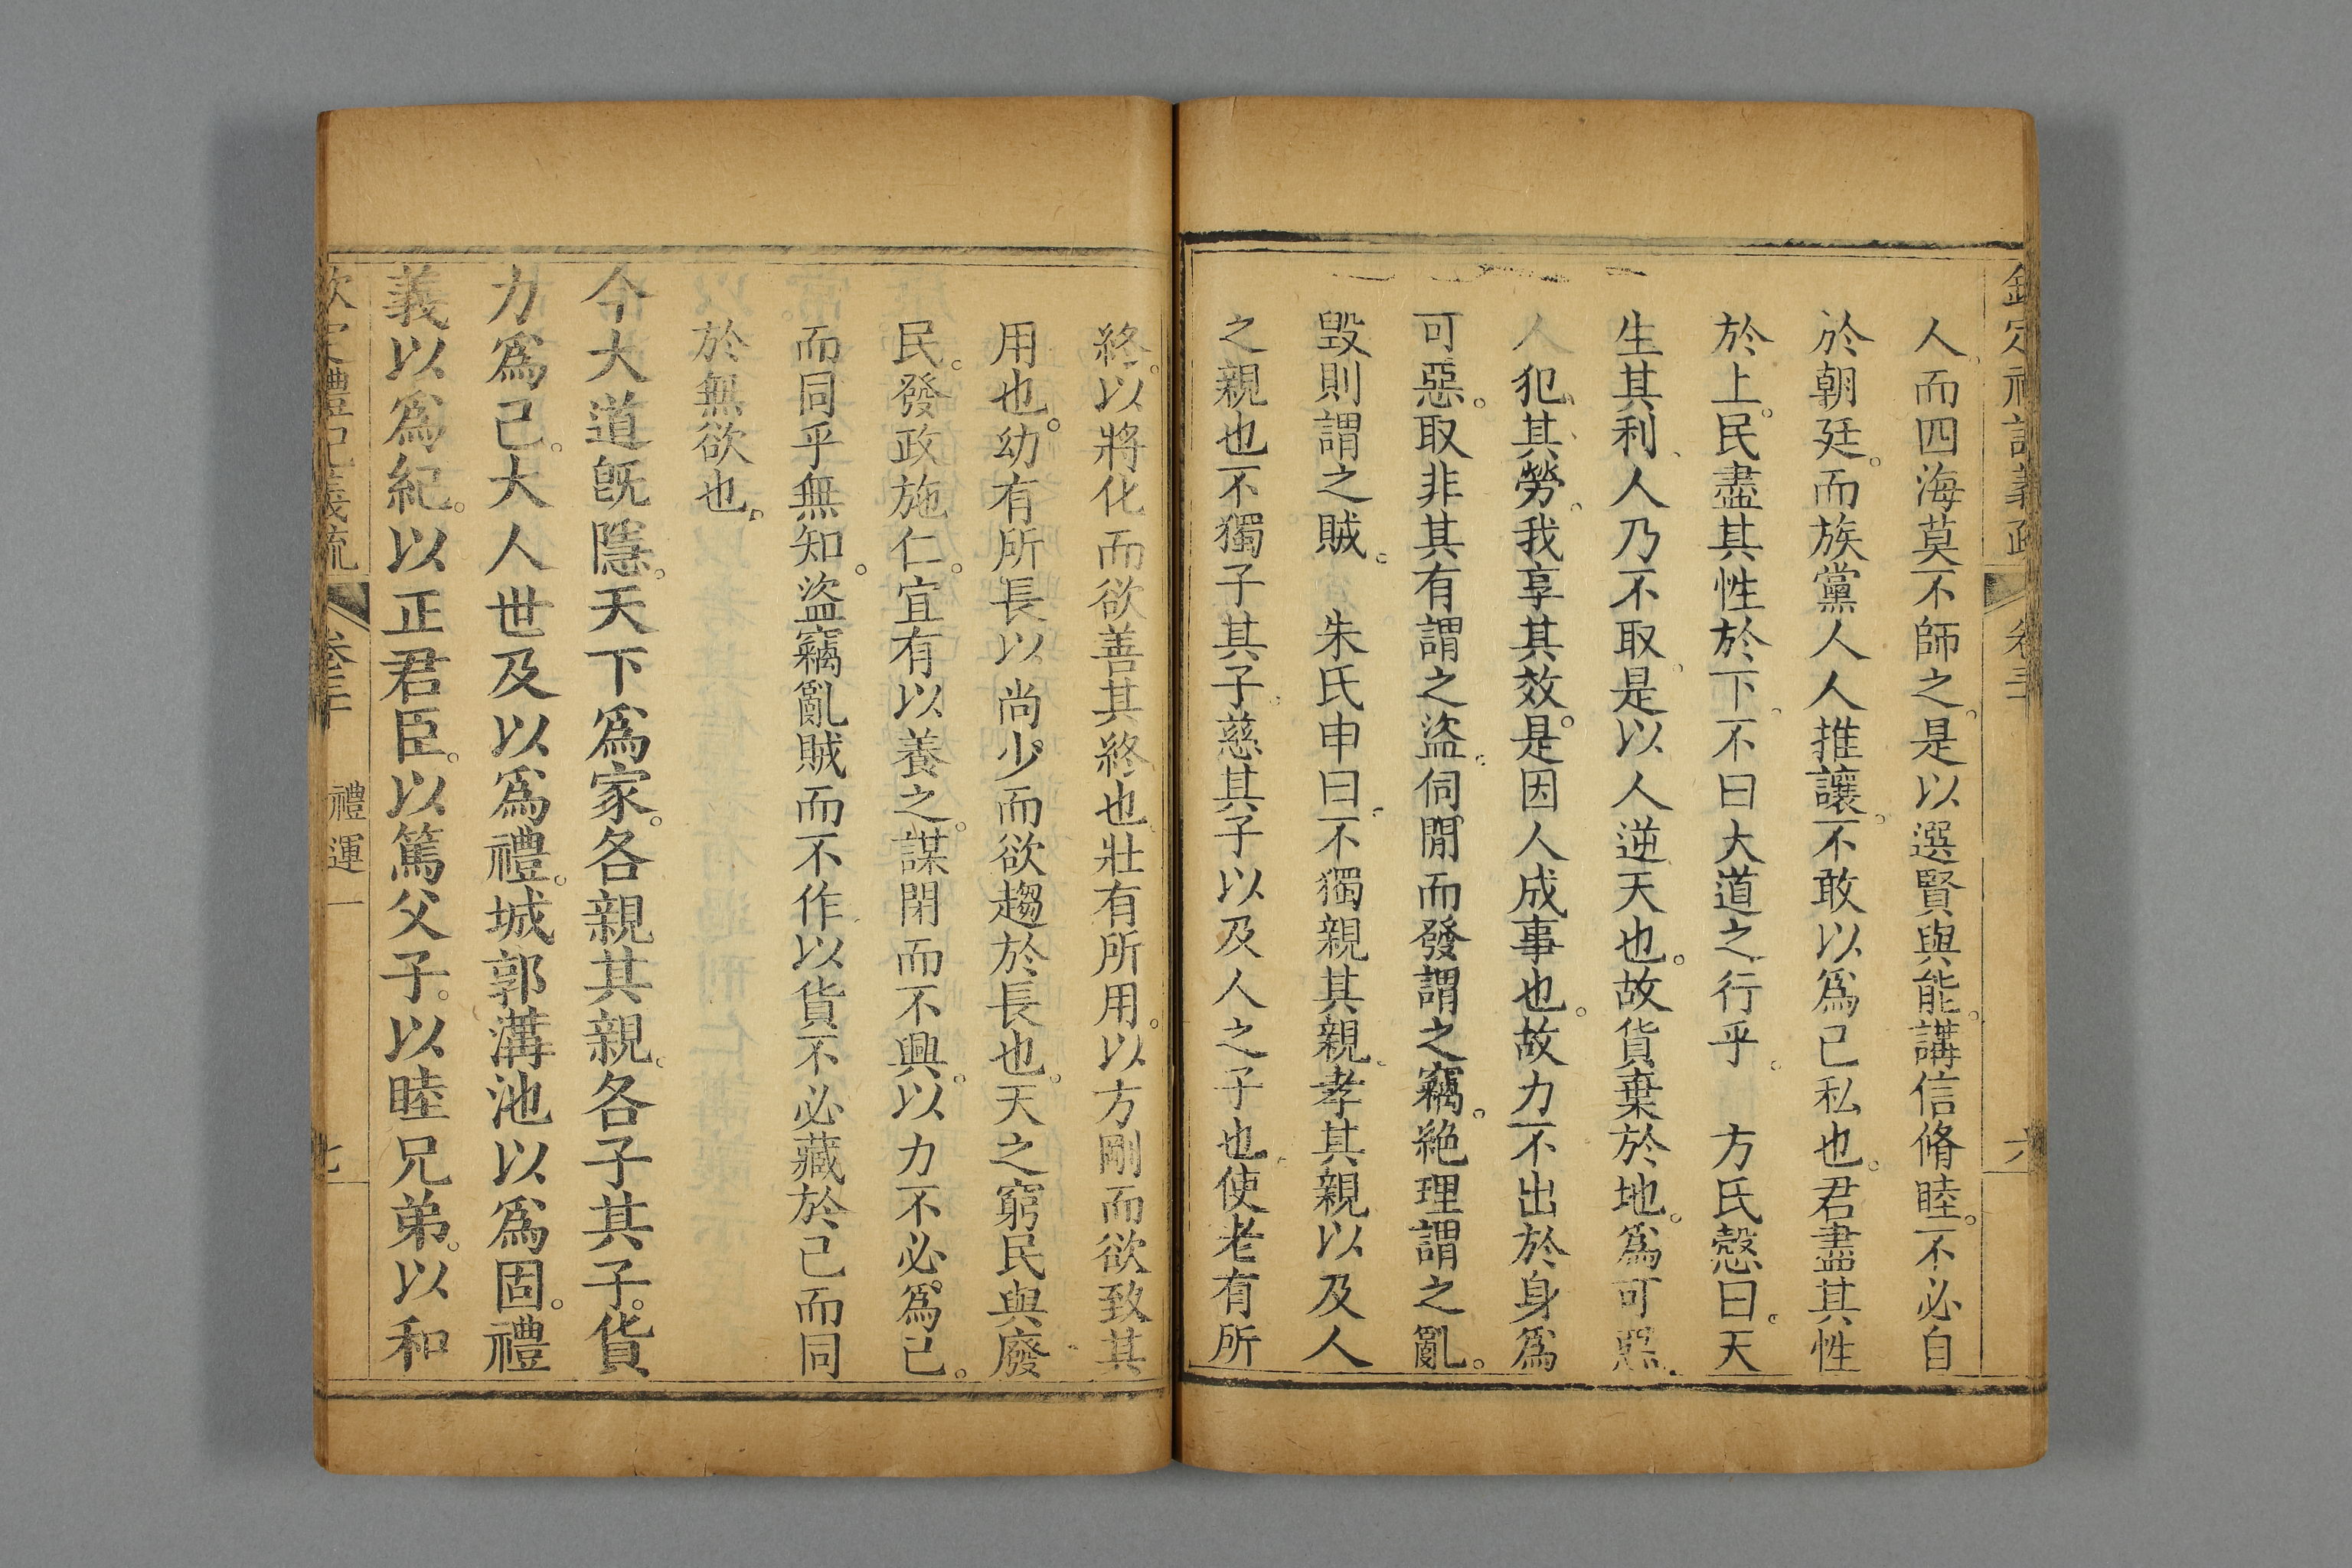 欽定禮記義疏 卷三十 六
人而四海莫不師之是以選賢與能講信脩睦不必自
於朝廷而族黨人人推讓不敢以爲己私也君盡其性
於上民盡其性於下不曰大道之行乎 方氏愨曰天
生其利人乃不取是以人逆天也故貨棄於地爲可惡
人犯其勞我享其效是因人成事也故力不出於身爲
可惡取非其有謂之盜伺閒而發謂之竊絶理謂之亂
毀則謂之賊 朱氏申曰不獨親其親孝其親以及人
之親也不獨子其子慈其子以及人之子也使老有所
終以將化而欲善其終也壯有所用以方剛而欲致其
用也幼有所長以尚少而欲趨於長也天之窮民與廢
民發政施仁宜有以養之謀閉而不興以力不必爲己
而同乎無知盜竊亂賊而不作以貨不必藏於己而同
於無欲也
今大道旣隱天下爲家各親其親各子其子貨
力爲己大人世及以爲禮城郭溝池以爲固禮
義以爲紀以正君臣以篤父子以睦兄弟以和
欽定禮記義疏 卷三十 禮運一 七